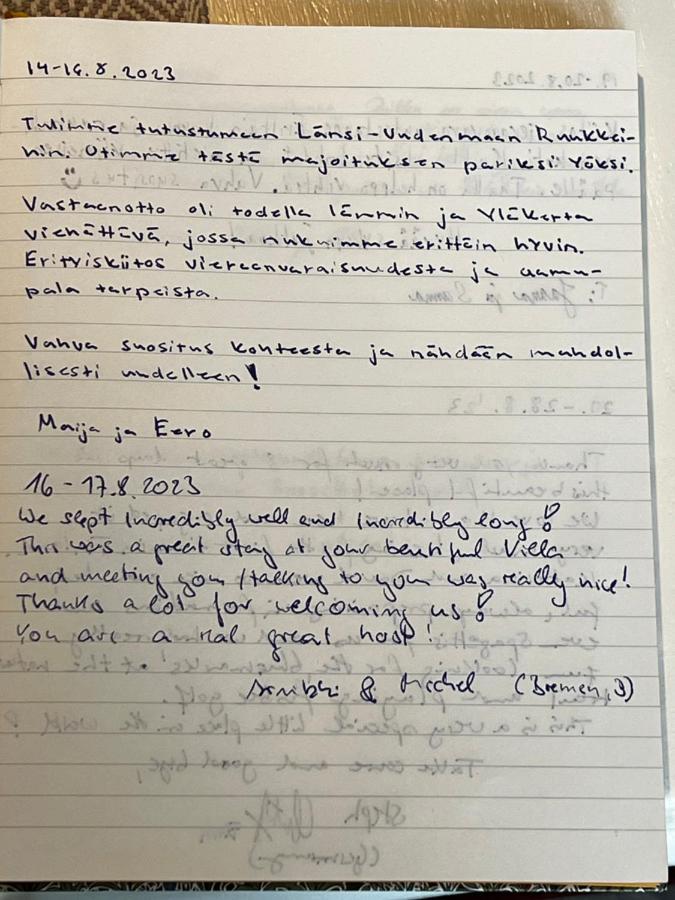 14-16.8.2023
Tulimme tutustumaan Länsi-Uudenmaan Ruukkei-
hin. Otimme tästä majoituksen pariksi yöksi.
Vastaanotto oli todella lämmin ja Yläkerta
viehättävä, jossa nukuimme erittäin hyvin.
Erityiskiitos vieraanvaraisuudesta ja aamu-
pala tarpeista.
Vahva suositus kohteesta ja nähdään mahdol-
lisesti uudelleen!
Maija ja Eero
16-17.8.2023
We slept incredibly well and incredibly long!
This was a great stay at your beutiful Villa
and meeting you/talking to you was really nice!
Thanks a lot for welcoming us!
You are a real great host!
& Michel (Bremen,